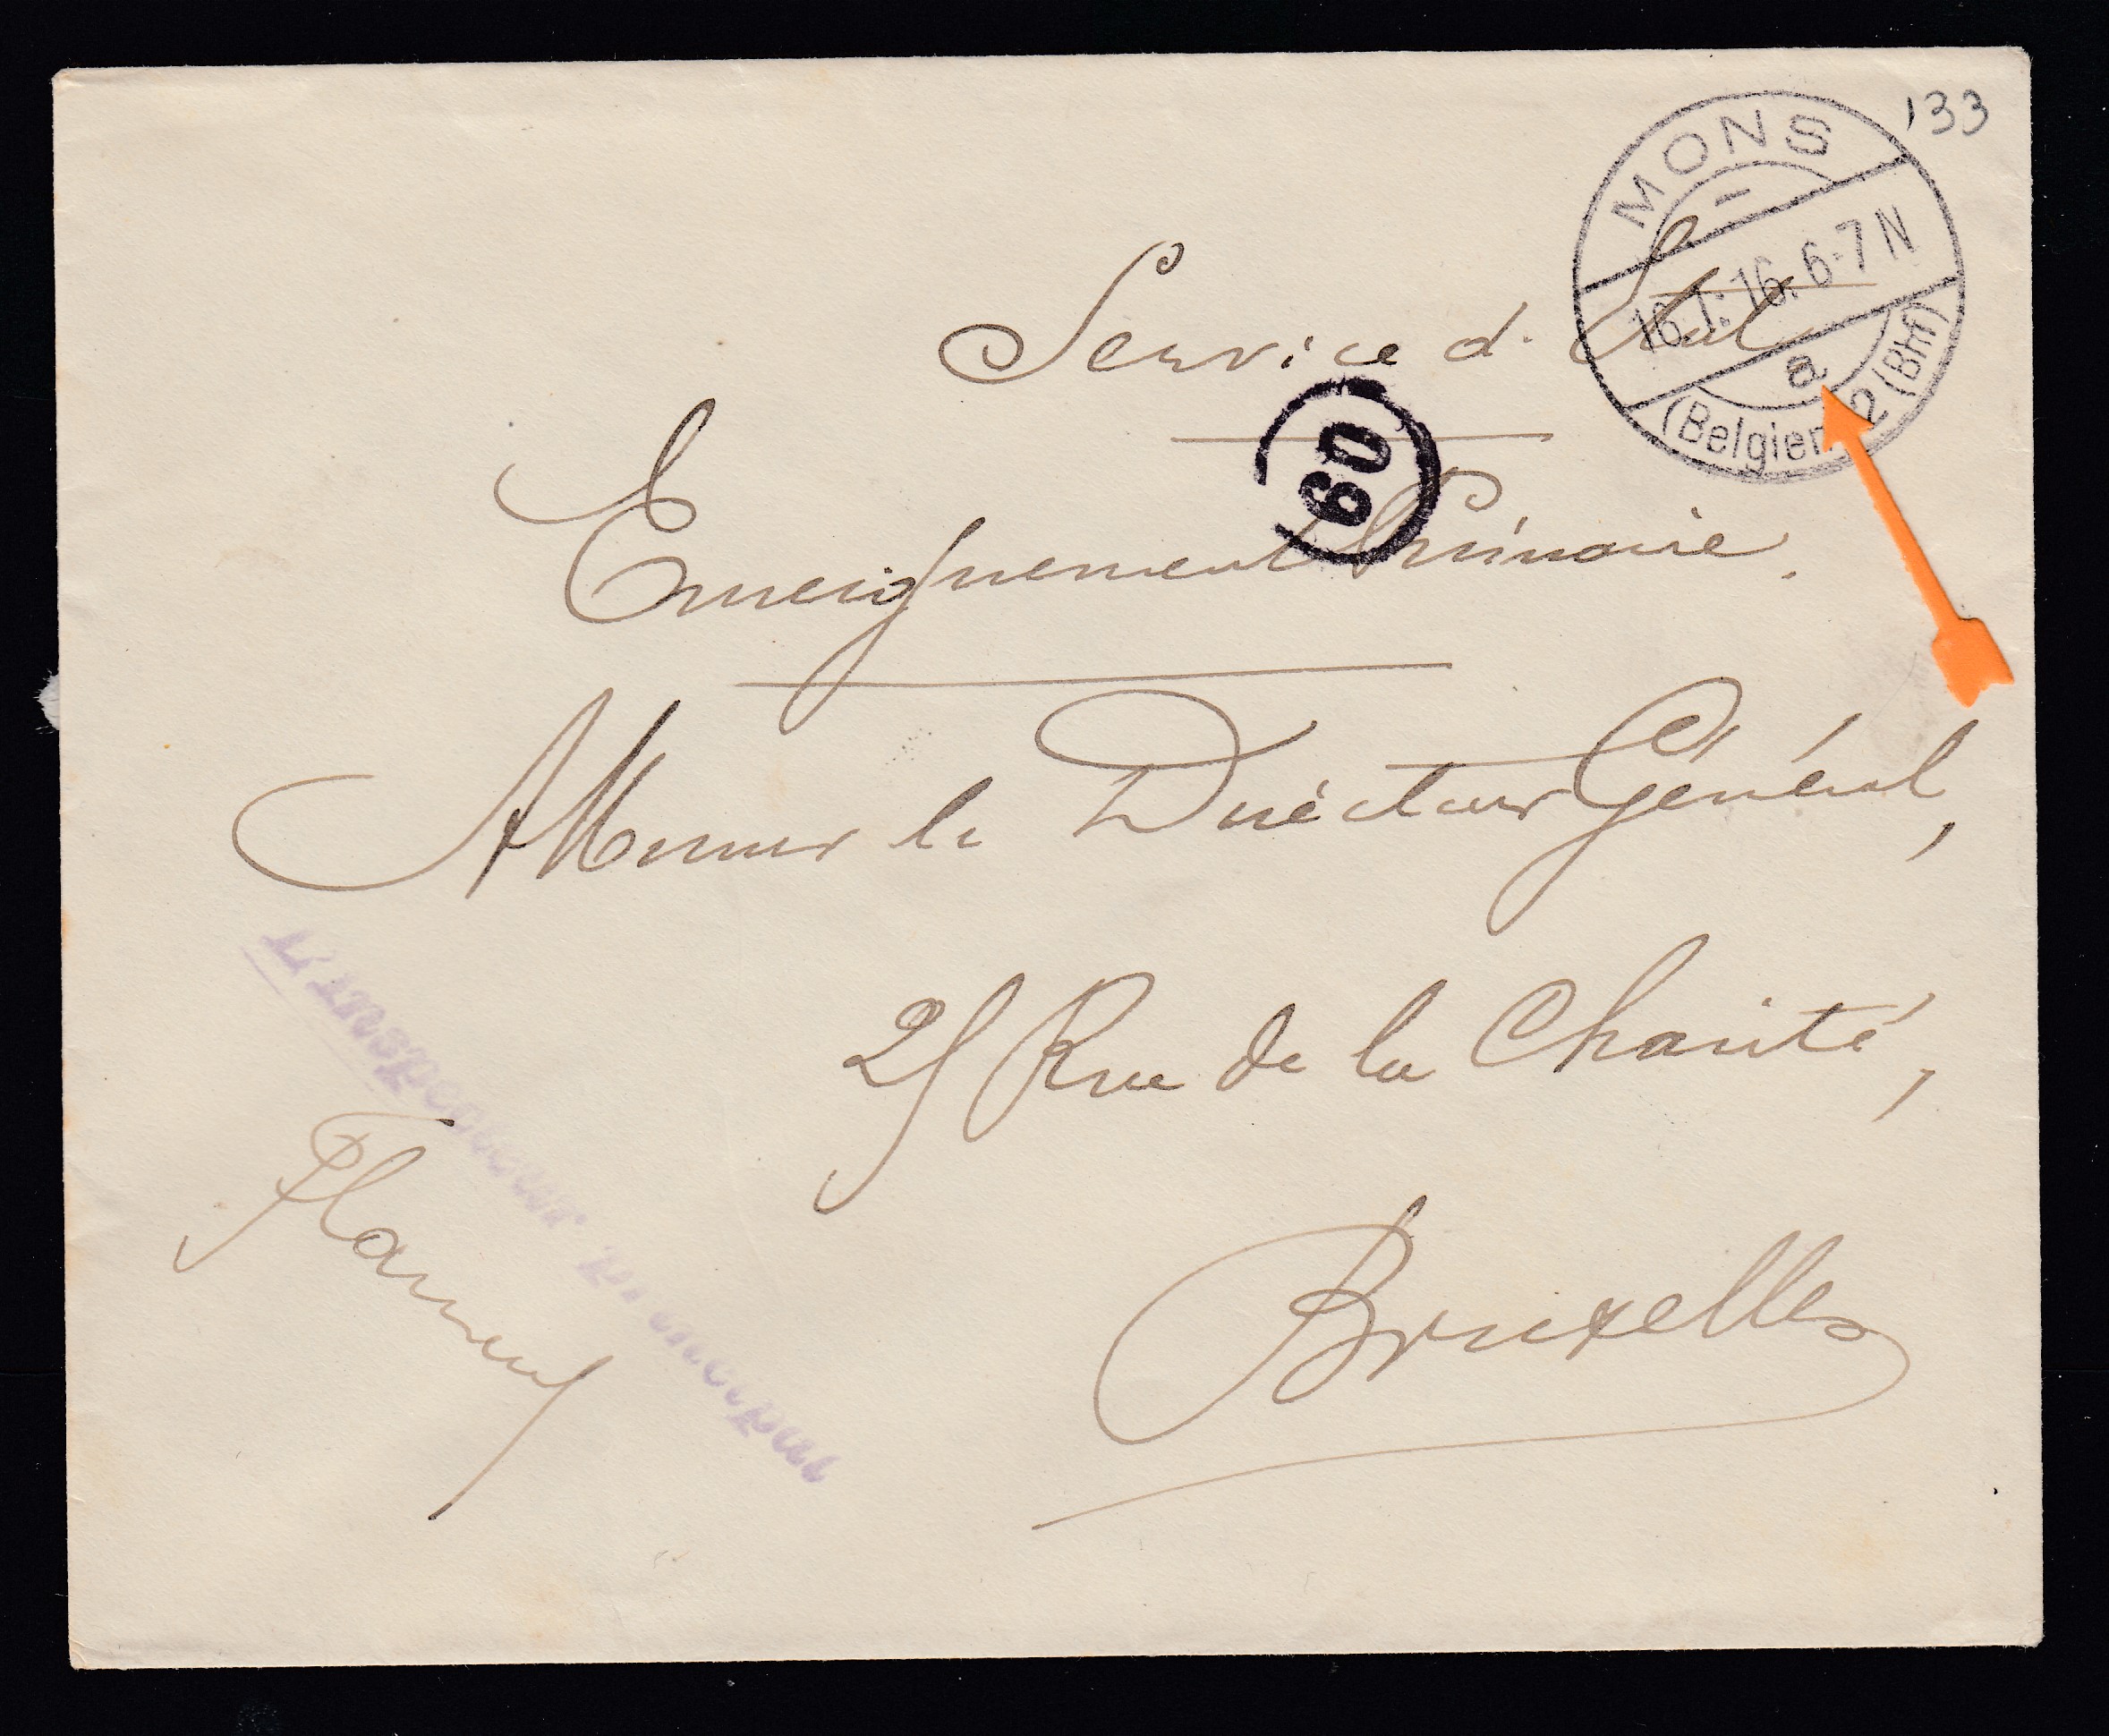 133
MONS
16.1.16. 6-7 N
a
(Belgien) 2 (Bhf)
Service d. Etat
60
Enseignement Primaire.
A Monsieur le Directeur Général,
25 Rue de la Charité,
L'Inspecteur Principal
Bruxelles